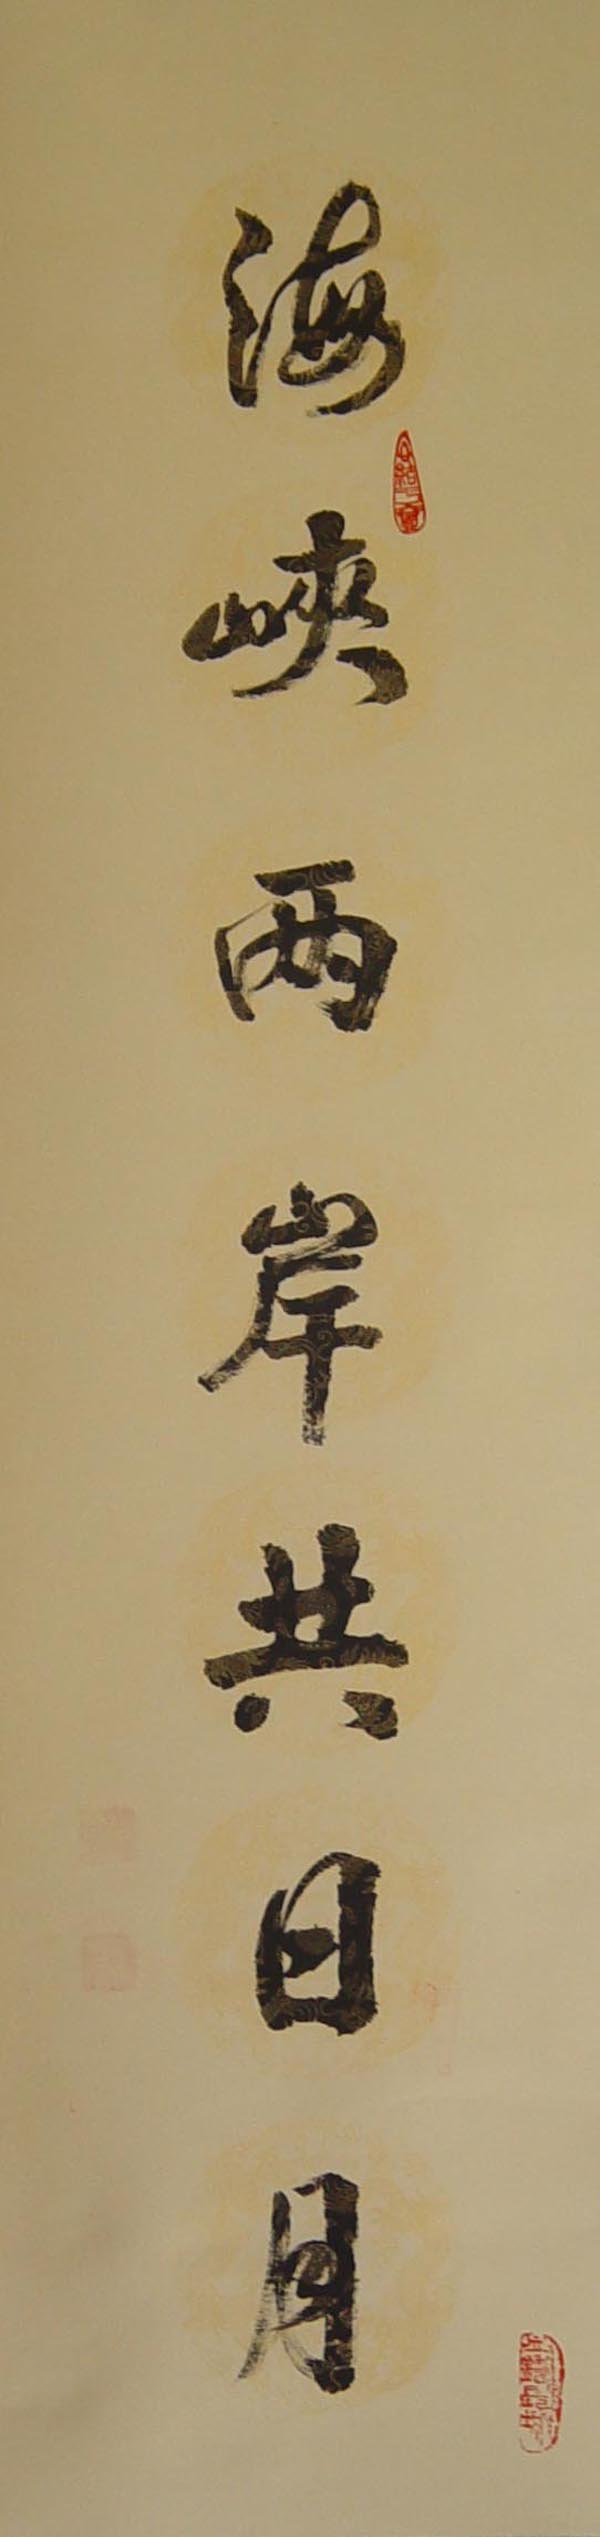 海峡两岸共日月